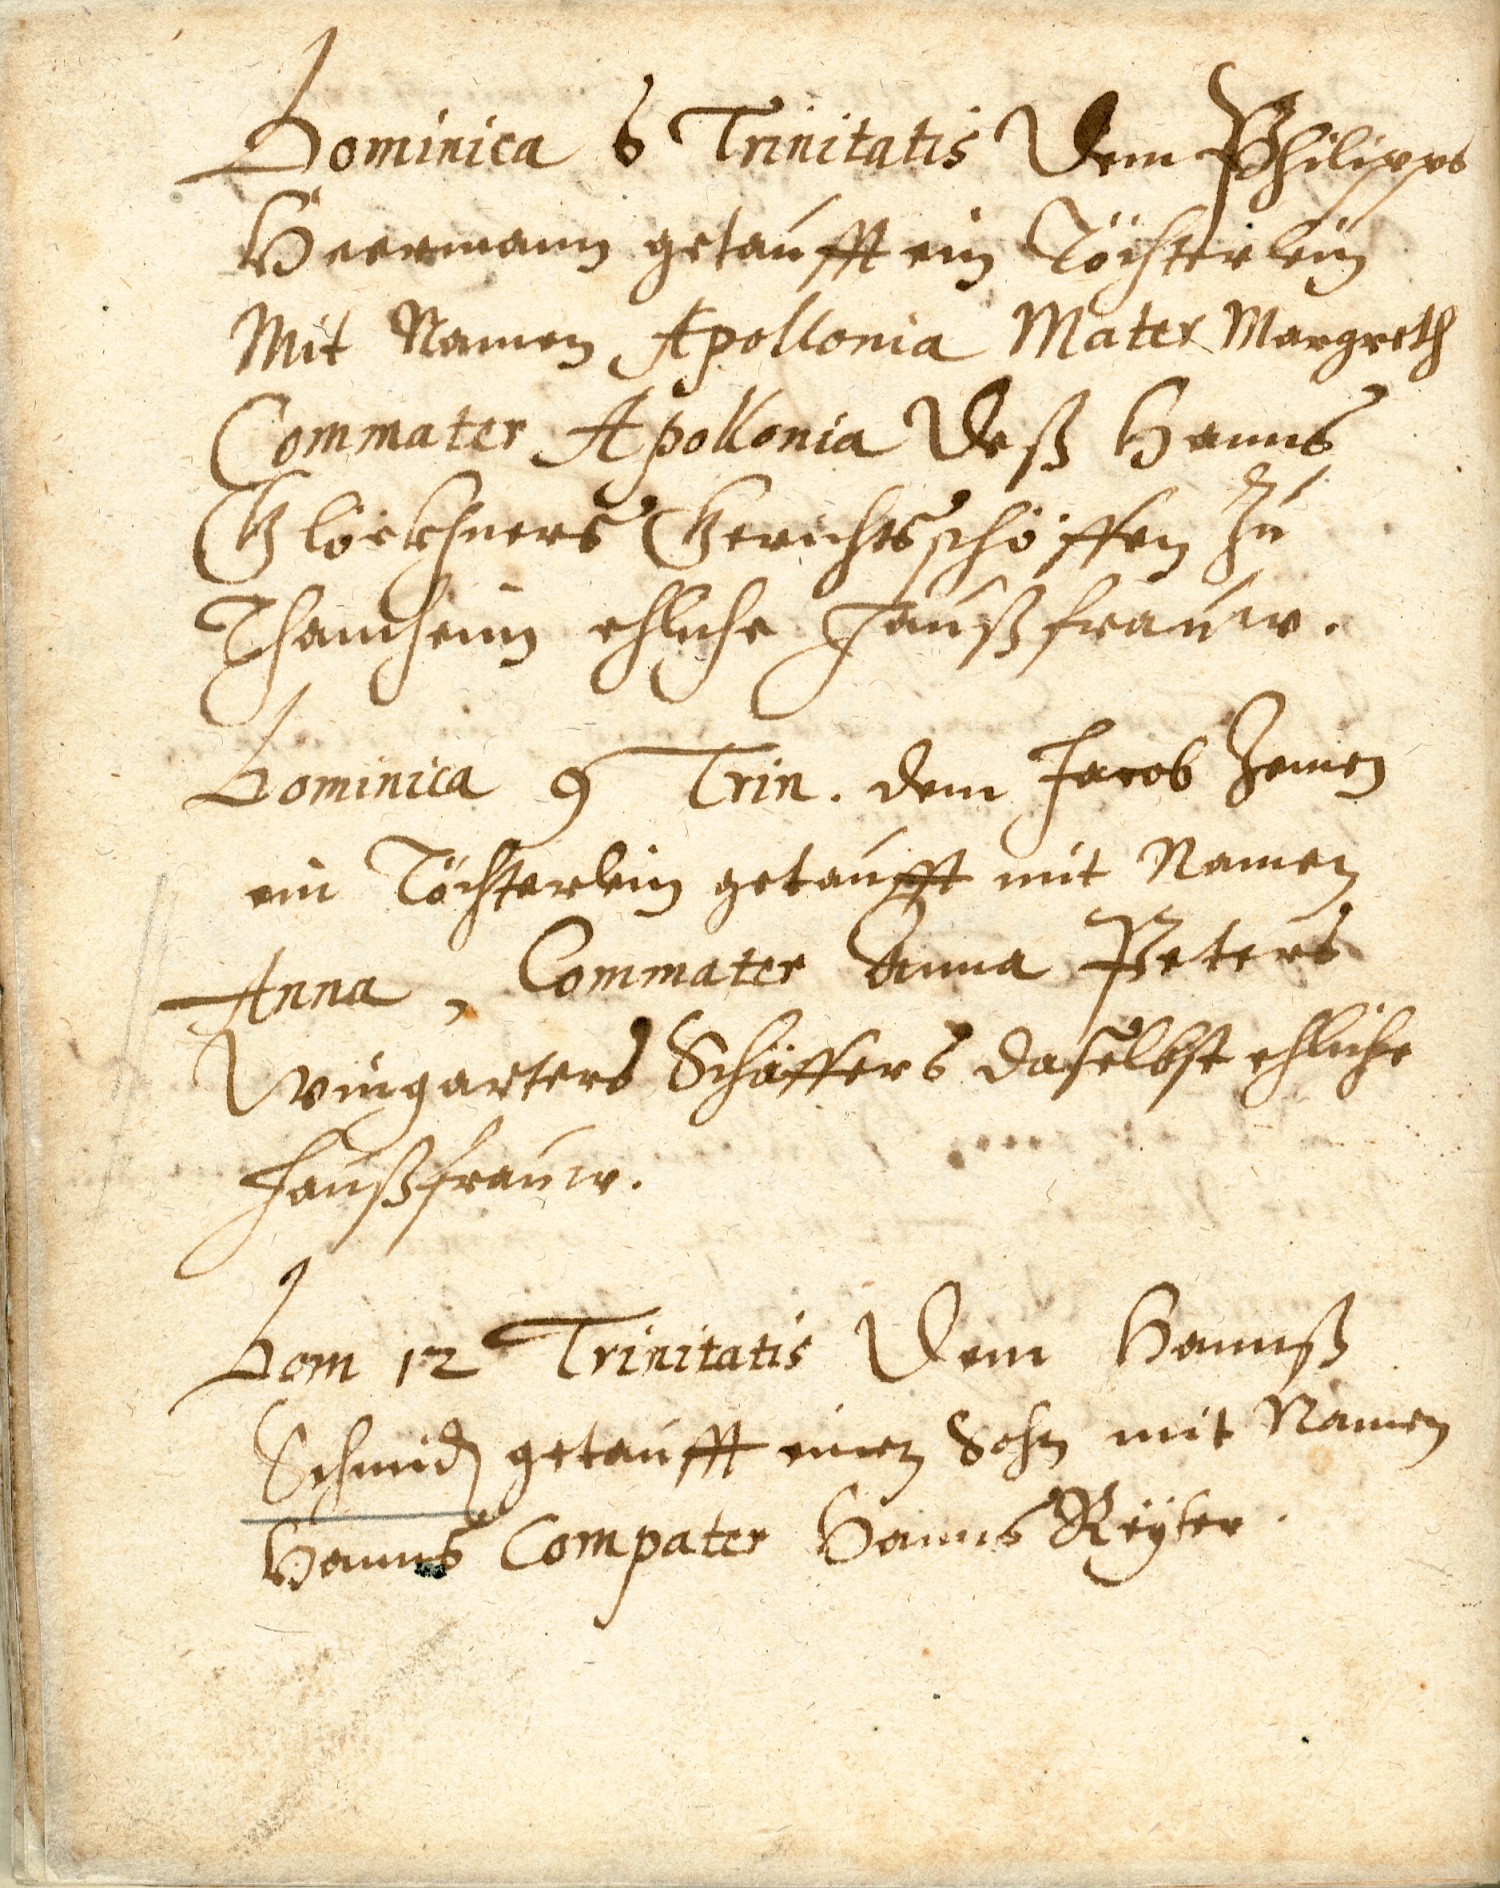 Dominica 6 Trinitatis Dem Philipps
Heermann getaufft ein Töchterlein
Mit Namen Apollonia Mater Margreth
Commater Apollonia Deß Hanns
Glöckhners Gerichtsschöffen Zu
Thanheim ehliche Haußfrauw.
Dominica 9 Trin. dem Jacob
ein Töchterlein getaufft mit Namen
Anna, Commater Anna Peters
Wingarters Schäffers daselbst ehliche
Haußfrauw.
Dom 12 Trinitatis Dem Hannß
Schmid getaufft einen Sohn mit Namen
Hanns Compater Hanns Reyter.